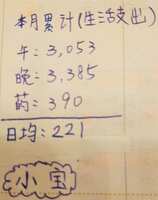 本月累计(生活支出)
午: 3,053
晚: 3,385
药: 390
日均: 221
小宝